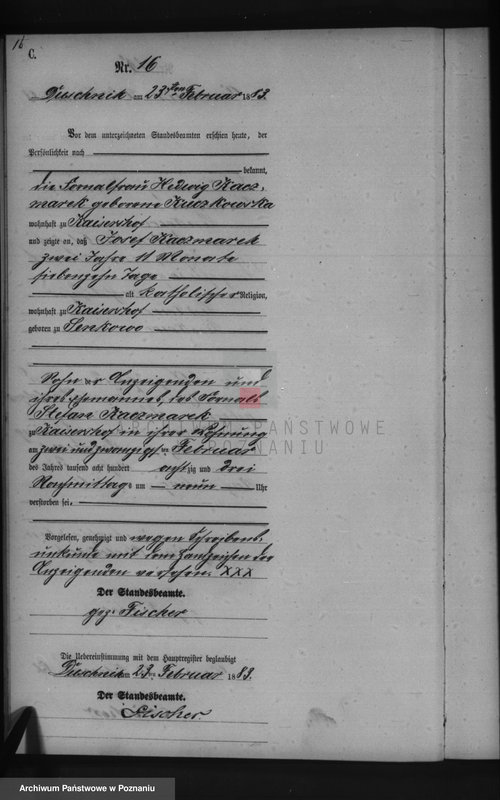 16
C.
Nr. 16
Duschnik am 23ten Februar 1883.
Vor dem unterzeichneten Standesbeamten erschien heute, der
Persönlichkeit nach
bekannt,
die Fornalfrau Hedwig Kacz-
marek geborene Kuczkowska
wohnhaft zu Kaiserhof
und zeigte an, daß Josef Kaczmarek
zwei Jahre 11 Monate
siebenzehn Tage
alt katholischer Religion,
wohnhaft zu Kaiserhof
geboren zu Senkowo
Sohn der Anzeigenden und
ihres Ehemannes, des Fornals
Stefan Kaczmarek
zu Kaiserhof in ihrer Wohnung
am zwei und zwanzigsten Februar
des Jahres tausend acht hundert achtzig und drei
Nachmittags um neun Uhr
verstorben sei.
Vorgelesen, genehmigt und wegen Schreibens-
unkunde mit dem Handzeichen der
Anzeigenden versehen. XXX
Der Standesbeamte.
gez. Fischer
Die Uebereinstimmung mit dem Hauptregister beglaubigt
Duschnik am 23ten Februar 1883.
Der Standesbeamte.
Fischer.
ARCHIWUM PAŃSTWOWE
W POZNANIU
Archiwum Państwowe w Poznaniu